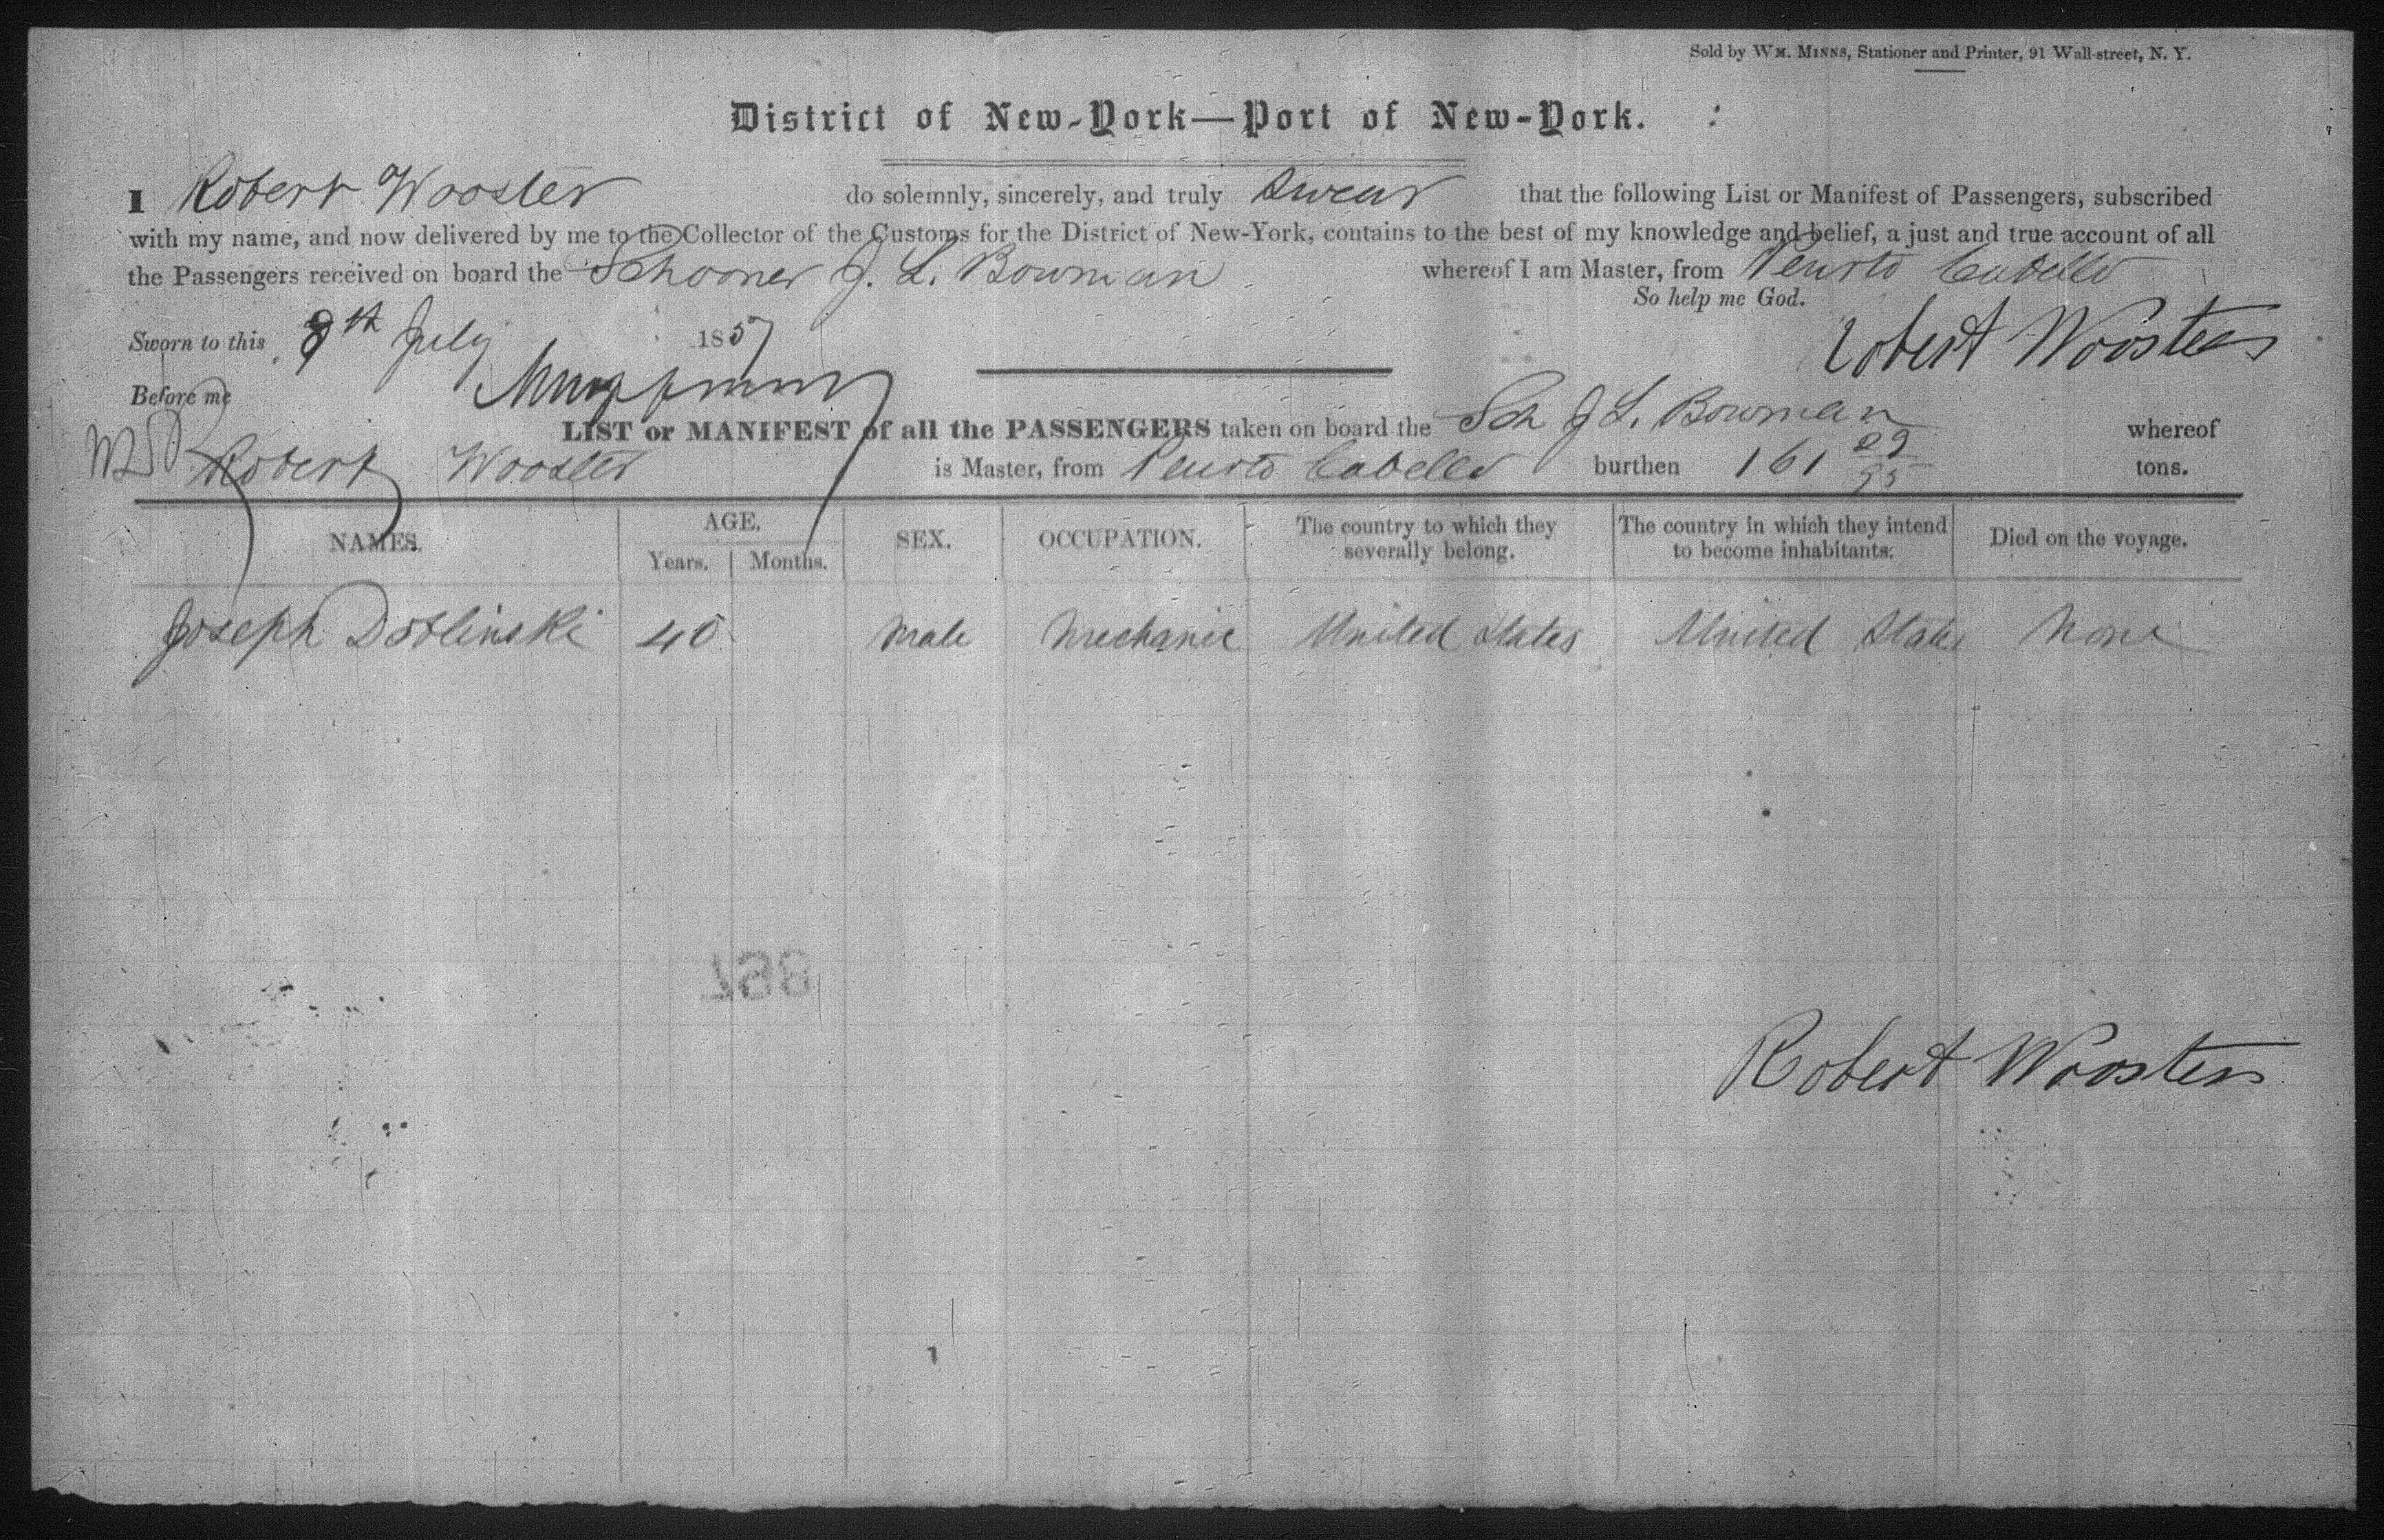 Sold by WM. MINNS, Stationer and Printer, 91 Wall-street, N. Y.
District of New-York—Port of New-York.
I Robert Wooster do solemnly, sincerely, and truly Swear that the following List or Manifest of Passengers, subscribed
with my name, and now delivered by me to the Collector of the Customs for the District of New-York, contains to the best of my knowledge and belief, a just and true account of all
the Passengers received on board the Schooner J. L. Bowman whereof I am Master, from Puerto Cabello
So help me God.
Sworn to this 8th July 1857
Robert Wooster
Before me
LIST or MANIFEST of all the PASSENGERS taken on board the Sch J L. Bowman whereof
Robert Wooster is Master, from Puerto Cabello burthen 161 29/95 tons.
NAMES. AGE. Years. Months. SEX. OCCUPATION. The country to which they severally belong. The country in which they intend to become inhabitants. Died on the voyage.
Joseph Doblinski 40 Male Mechanic United States United States None
867
Robert Wooster